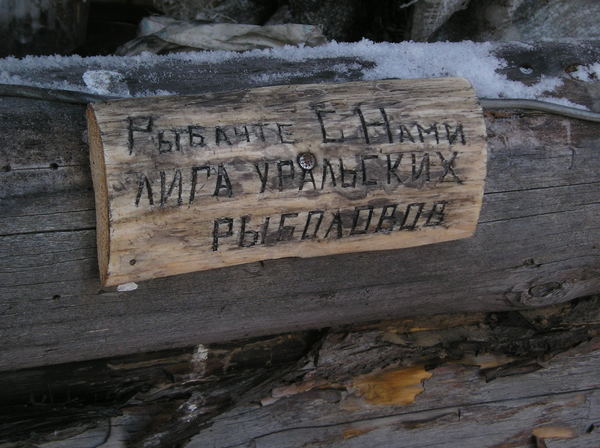 РЫБАЧТЕ С НАМИ
ЛИГА УРАЛЬСКИХ
РЫБОЛОВОВ